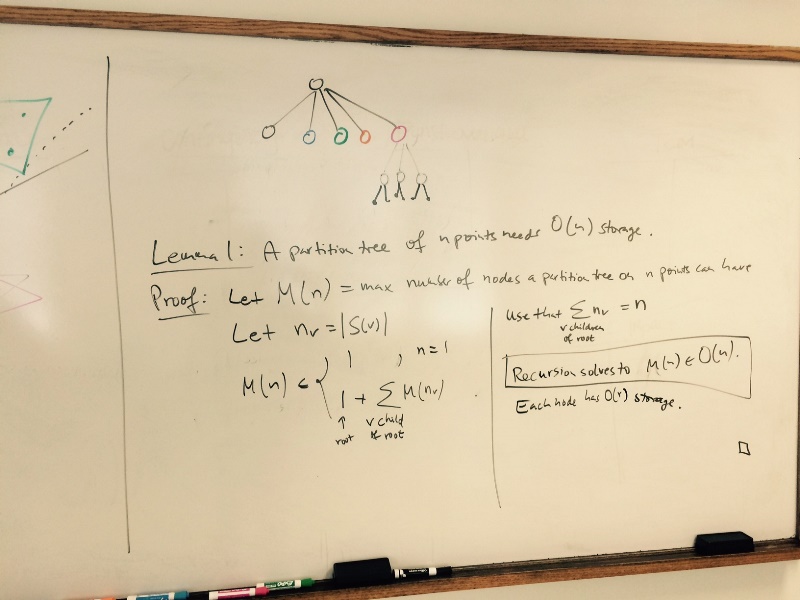 Lemma 1: A partition tree of n points needs O(n) storage.
Proof: Let M(n) = max number of nodes a partition tree on n points can have
Let nᵥ = |S(v)|
M(n) ≤ { 1 , n=1
1 + Σ M(nᵥ)
↑ v child
root of root
Use that Σ nᵥ = n
v children
of root
Recursion solves to M(n) ∈ O(n).
Each node has O(r) storage.
□